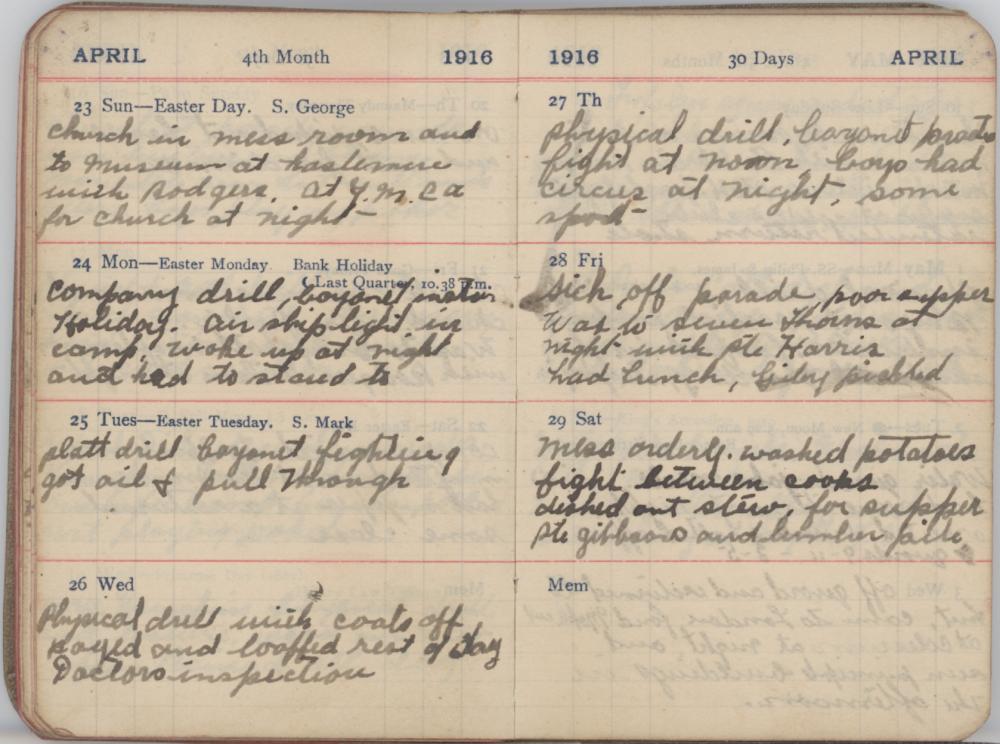 APRIL 4th Month 1916
23 Sun—Easter Day. S. George
church in mess room and
to museum at haslemere
with Rodgers. at Y.M.C.a
for church at night
24 Mon—Easter Monday Bank Holiday
Last Quarter, 10.38 p.m.
Company drill, bayonet
Holiday. air ship light in
camp, woke up at night
and had to stand to
25 Tues—Easter Tuesday. S. Mark
platt drill bayonet fighting
got oil & pull through
26 Wed
Physical drill with coats off
payed and loaffed rest of day
Doctors inspection
1916 30 Days APRIL
27 Th
physical drill, bayonet
fight at noon, boys had
circus at night, some
sport
28 Fri
Sick off parade, poor supper
Was to seven Thorns at
night with Pte Harris
had lunch,
29 Sat
mess orderly. washed potatoes
fight between cooks
dished out stew, for supper
Pte gibbsons and lumber pile
Mem